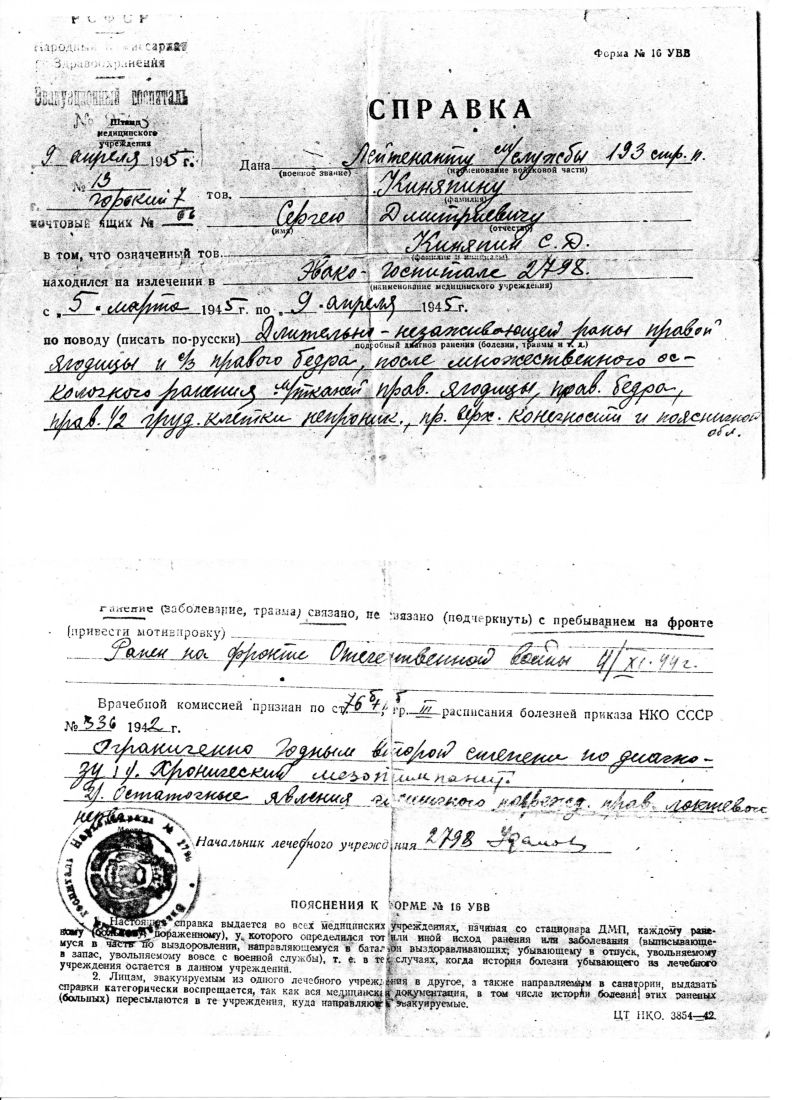 РСФСР
Народный Комиссариат
Здравоохранения
Эвакуационный госпиталь
№
Штамп
медицинского
учреждения
9 апреля 1945 г.
№ 13
г. Горький 7
почтовый ящик № 66
Форма № 16 УВВ
СПРАВКА
Дана Лейтенанту м/службы 193 стр. п.
(военное звание) (наименование войсковой части)
тов. Киняпину
(фамилия)
Сергею Дмитриевичу
(имя) (отчество)
в том, что означенный тов. Киняпин С. Д.
(фамилия и инициалы)
находился на излечении в Эвако-госпитале 2798.
(наименование медицинского учреждения)
с „5" марта 1945 г. по „9" апреля 1945 г.
по поводу (писать по-русски) Длительно-незаживающей раны правой
подробный диагноз ранения (болезни, травмы и т. д.)
ягодицы и с/3 правого бедра, после множественного ос-
колочного ранения м/тканей прав. ягодицы, прав. бедра,
прав. 1/2 груд. клетки непроник., пр. верх. конечности и поясничной
обл.
Ранение (заболевание, травма) связано, не связано (подчеркнуть) с пребыванием на фронте
(привести мотивировку)
Ранен на фронте Отечественной войны 4/XI-44 г.
Врачебной комиссией признан по ст. 76 б гр. III расписания болезней приказа НКО СССР
№ 336 1942 г.
Ограниченно годным второй степени по диагно-
зу 1). Хронический мезотимпанит.
2). Остаточные явления поврежд. прав. локтевого
нерва
Начальник лечебного учреждения 2798
ПОЯСНЕНИЯ К ФОРМЕ № 16 УВВ
Настоящая справка выдается во всех медицинских учреждениях, начиная со стационара ДМП, каждому ране-
ному (больному, пораженному), у которого определился тот или иной исход ранения или заболевания (выписывающе-
муся в часть по выздоровлении, направляющемуся в батальон выздоравливающих; убывающему в отпуск, увольняемому
в запас, увольняемому вовсе с военной службы), т. е. в тех случаях, когда история болезни убывающего из лечебного
учреждения остается в данном учреждений.
2. Лицам, эвакуируемым из одного лечебного учреждения в другое, а также направляемым в санатории, выдавать
справки категорически воспрещается, так как вся медицинская документация, в том числе истории болезни этих раненых
(больных) пересылаются в те учреждения, куда направляются эвакуируемые.
ЦТ НКО. 3854—42.